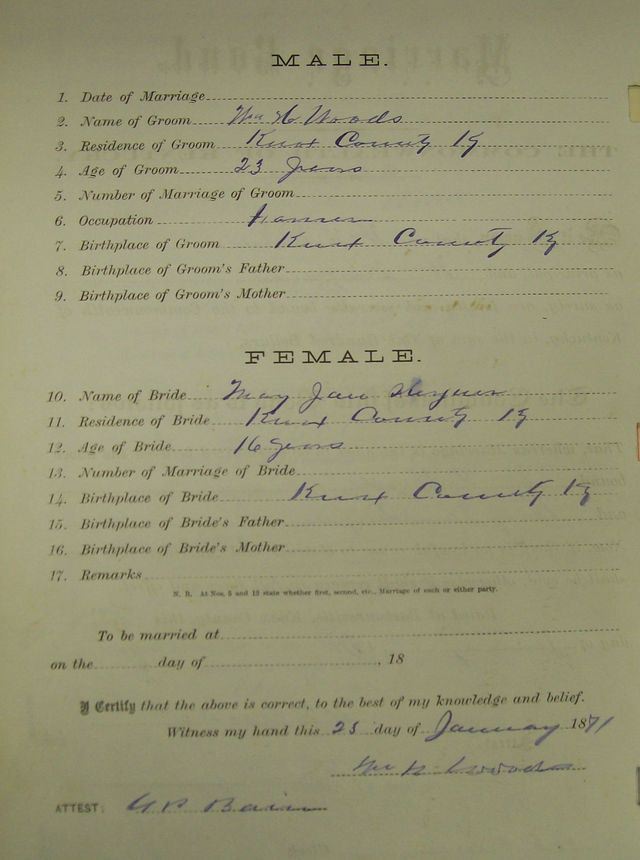 MALE.
1. Date of Marriage
2. Name of Groom Wm H Woods
3. Residence of Groom Knox County Ky
4. Age of Groom 23 years
5. Number of Marriage of Groom
6. Occupation Farmer
7. Birthplace of Groom Knox County Ky
8. Birthplace of Groom's Father
9. Birthplace of Groom's Mother
FEMALE.
10. Name of Bride May Jane
11. Residence of Bride Knox County Ky
12. Age of Bride 16 years
13. Number of Marriage of Bride
14. Birthplace of Bride Knox County Ky
15. Birthplace of Bride's Father
16. Birthplace of Bride's Mother
17. Remarks
N. B. At Nos. 5 and 13 state whether first, second, etc., Marriage of each or either party.
To be married at
on the day of , 18
I Certify that the above is correct, to the best of my knowledge and belief.
Witness my hand this 23 day of January 1871
Wm H Woods
ATTEST: Bain